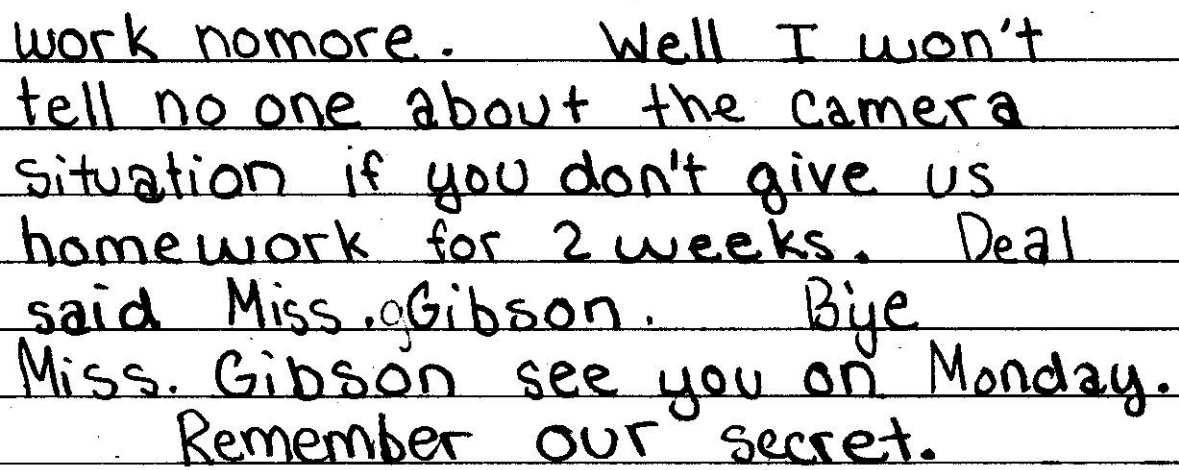 work nomore. Well I won't
tell no one about the camera
situation if you don't give us
homework for 2 weeks. Deal
said Miss. Gibson. Biye
Miss. Gibson see you on Monday.
Remember our secret.